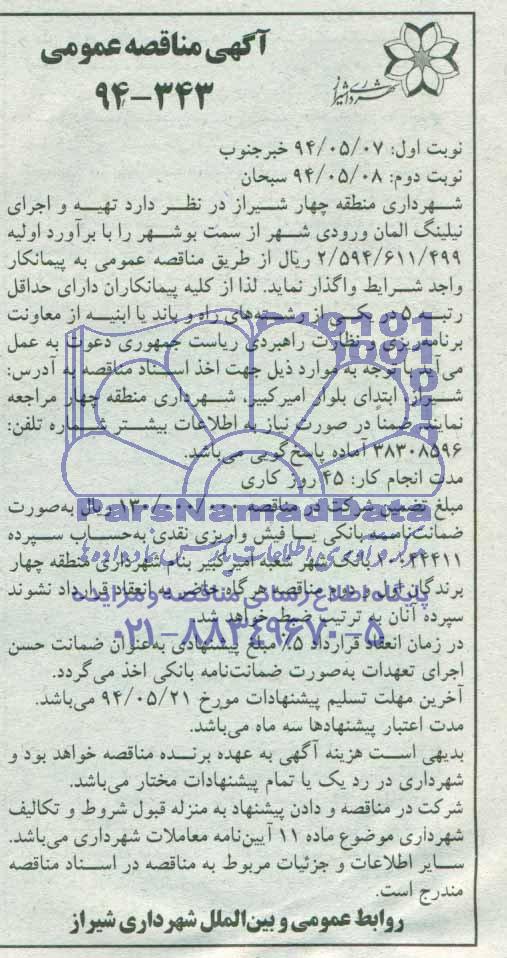 آگهی مناقصه عمومی
۹۴-۳۴۳
شهرداری شیراز
نوبت اول: ۹۴/۰۵/۰۷ خبرجنوب
نوبت دوم: ۹۴/۰۵/۰۸ سبحان
شهرداری منطقه چهار شیراز در نظر دارد تهیه و اجرای
نیلینگ المان ورودی شهر از سمت بوشهر را با برآورد اولیه
۲/۵۹۴/۶۱۱/۴۹۹ ریال از طریق مناقصه عمومی به پیمانکار
واجد شرایط واگذار نماید. لذا از کلیه پیمانکاران دارای حداقل
رتبه ۵ در یکی از رشته‌های راه و باند یا ابنیه از معاونت
برنامه‌ریزی و نظارت راهبردی ریاست جمهوری دعوت به عمل
می‌آید با توجه به موارد ذیل جهت اخذ اسناد مناقصه به آدرس:
شیراز، ابتدای بلوار امیرکبیر، شهرداری منطقه چهار مراجعه
نمایند. ضمناً در صورت نیاز به اطلاعات بیشتر شماره تلفن:
۳۸۳۰۸۵۹۶ آماده پاسخ‌گویی می‌باشد.
مدت انجام کار: ۴۵ روز کاری
مبلغ تضمین شرکت در مناقصه ۱۳۰/۰۰۰/۰۰۰ ریال به‌صورت
ضمانت‌نامه بانکی یا فیش واریزی نقدی به‌حساب سپرده
بانک شهر شعبه امیرکبیر بنام شهرداری منطقه چهار
برندگان اول و دوم مناقصه هرگاه حاضر به انعقاد قرارداد نشوند
سپرده آنان به ترتیب ضبط خواهد شد.
در زمان انعقاد قرارداد ۵٪ مبلغ پیشنهادی به‌عنوان ضمانت حسن
اجرای تعهدات به‌صورت ضمانت‌نامه بانکی اخذ می‌گردد.
آخرین مهلت تسلیم پیشنهادات مورخ ۹۴/۰۵/۲۱ می‌باشد.
مدت اعتبار پیشنهادها سه ماه می‌باشد.
بدیهی است هزینه آگهی به عهده برنده مناقصه خواهد بود و
شهرداری در رد یک یا تمام پیشنهادات مختار می‌باشد.
شرکت در مناقصه و دادن پیشنهاد به منزله قبول شروط و تکالیف
شهرداری موضوع ماده ۱۱ آیین‌نامه معاملات شهرداری می‌باشد.
سایر اطلاعات و جزئیات مربوط به مناقصه در اسناد مناقصه
مندرج است.
روابط عمومی و بین‌الملل شهرداری شیراز
ParsNamadData
مرکز فرآوری اطلاعات پارس نماد داده‌ها
پایگاه اطلاع رسانی مناقصه و مزایده
۰۲۱-۸۸۳۴۹۶۷۰-۵